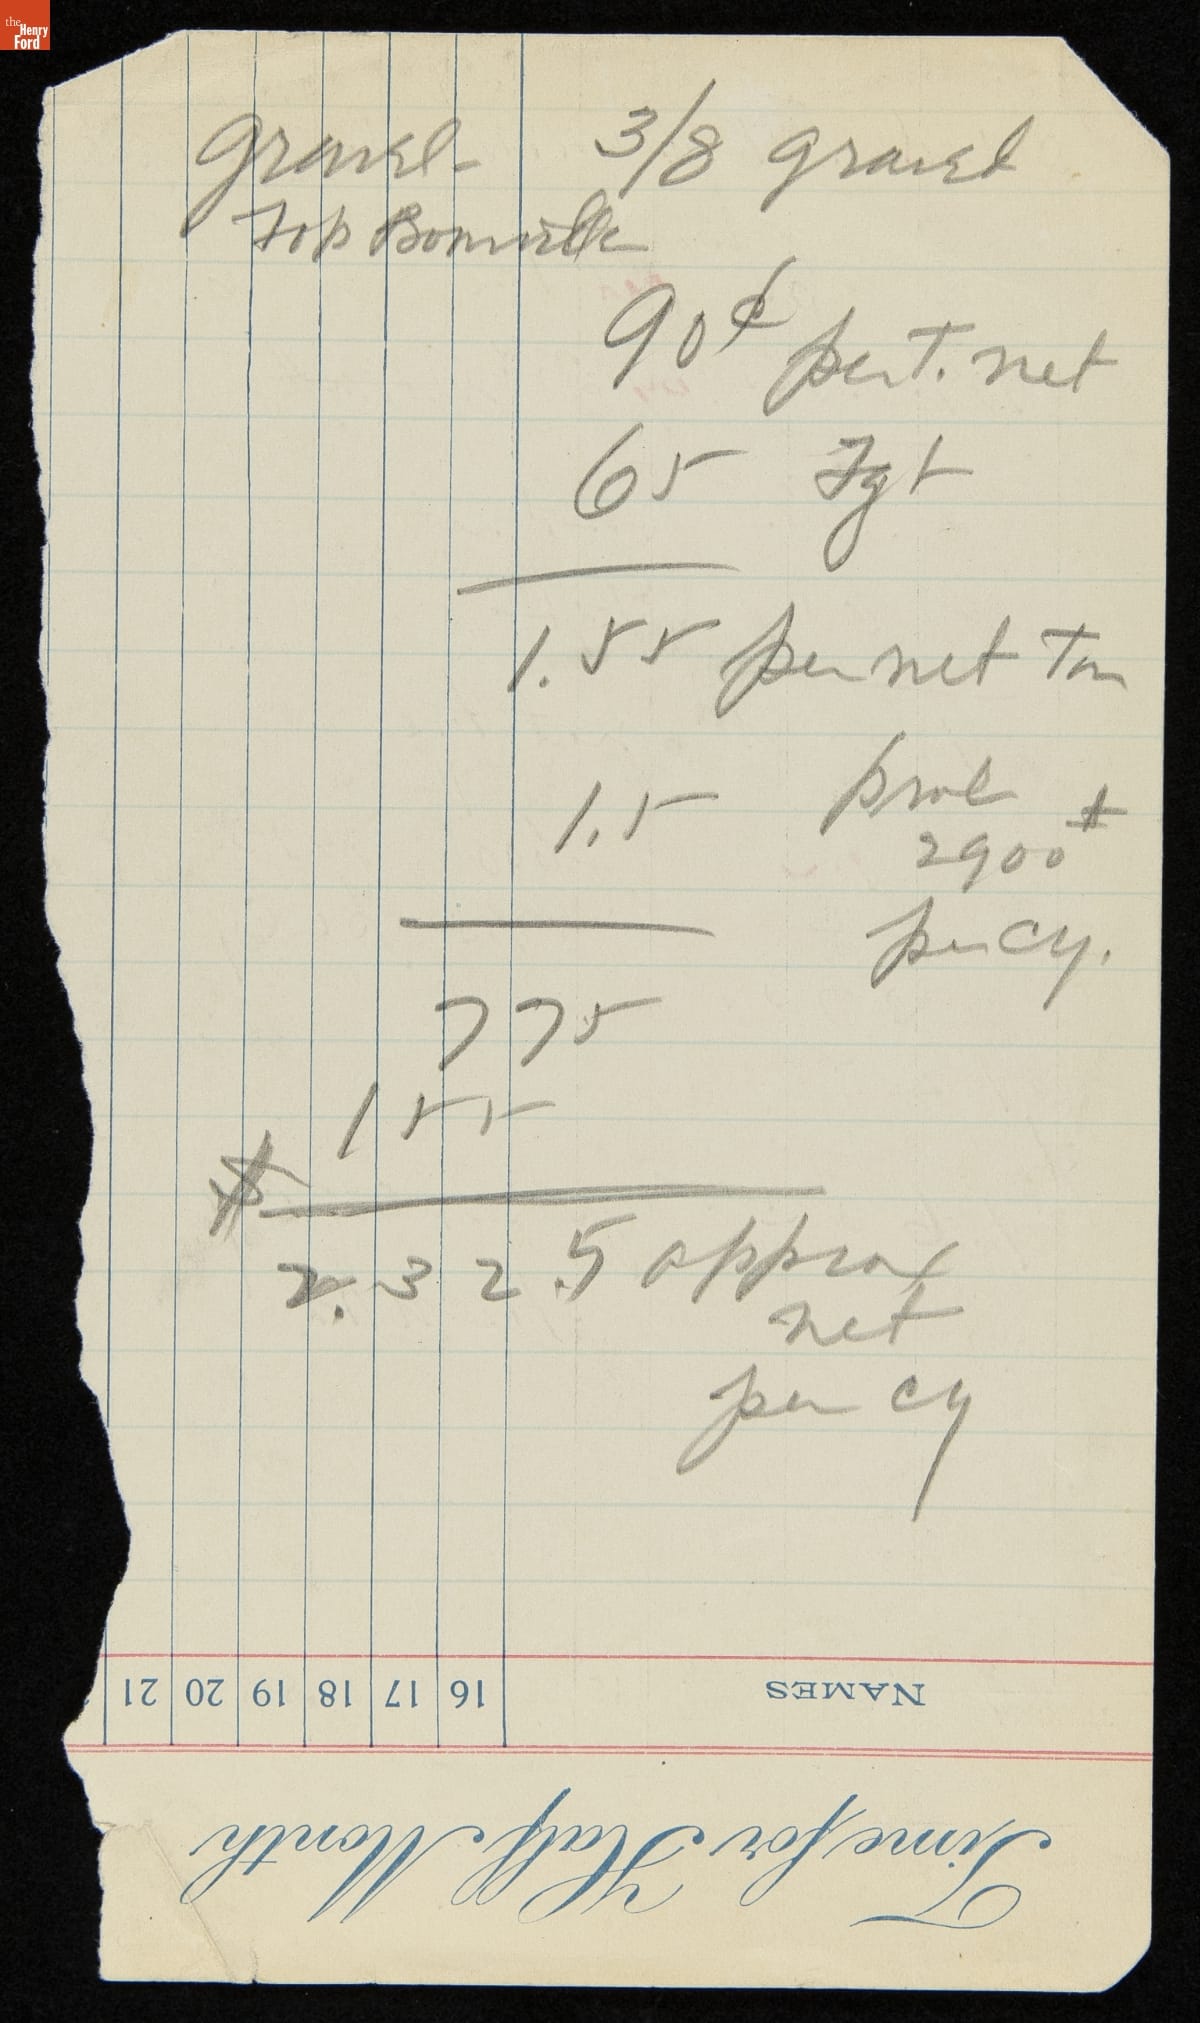 the
Henry
Ford
Gravel 3/8 gravel
Fob Bonneville
90¢ per T. net
65 Fgt
1.55 per net Ton
1.5 prob
2900 ±
per cy.
775
155
$
2.32.5 approx
net
per cy
21 20 19 18 17 16 NAMES
Time for Half Month